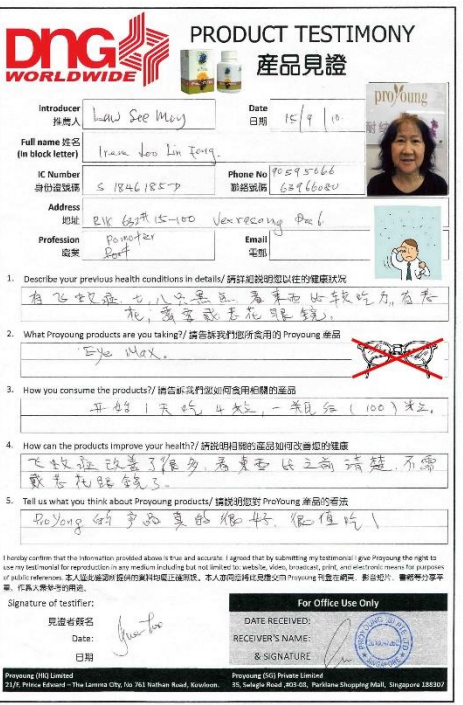 DNG
WORLDWIDE
PRODUCT TESTIMONY
產品見證
proyoung
Introducer
推薦人
Law See Moy
Date
日期
15/9/10
Full name 姓名
(in block letter)
IC Number
身份證號碼
Phone No
聯絡號碼
Address
地址
Profession
職業
Email
電郵
1. Describe your previous health conditions in details/ 請詳細說明您以往的健康狀況
有飞蚊症, 七、八只黑点, 看东西比较吃力, 有老
花, 需要戴老花眼镜.
2. What Proyoung products are you taking?/ 請告訴我們您所食用的 Proyoung 產品
Eye Max.
3. How you consume the products?/ 請告訴我們您如何食用相關的產品
开始1天吃4粒, 一瓶 (100) 粒.
4. How can the products improve your health?/ 請說明相關的產品如何改善您的健康
飞蚊症改善了很多, 看东西比之前清楚, 不需
戴老花眼镜了.
5. Tell us what you think about Proyoung products/ 請說明您對 ProYoung 產品的看法
ProYong 的产品真的很好, 很值吃!
I hereby confirm that the information provided above is true and accurate. I agreed that by submitting my testimonial I give Proyoung the right to
use my testimonial for reproduction in any medium including but not limited to: website, video, broadcast, print, and electronic means for purposes
of public references. 本人茲此確認所提供的資料均屬正確無誤。本人亦同意將此見證交由 Proyoung 刊登在網頁、影音短片、書籍等分享平
臺，作爲大眾參考的用途。
Signature of testifier:
見證者簽名
Date:
日期
For Office Use Only
DATE RECEIVED:
RECEIVER'S NAME:
& SIGNATURE
Proyoung (HK) Limited
21/F, Prince Edward – The Lamma City, No 761 Nathan Road, Kowloon.
Proyoung (SG) Private Limited
35, Selegie Road, #03-08, Parklane Shopping Mall, Singapore 188307